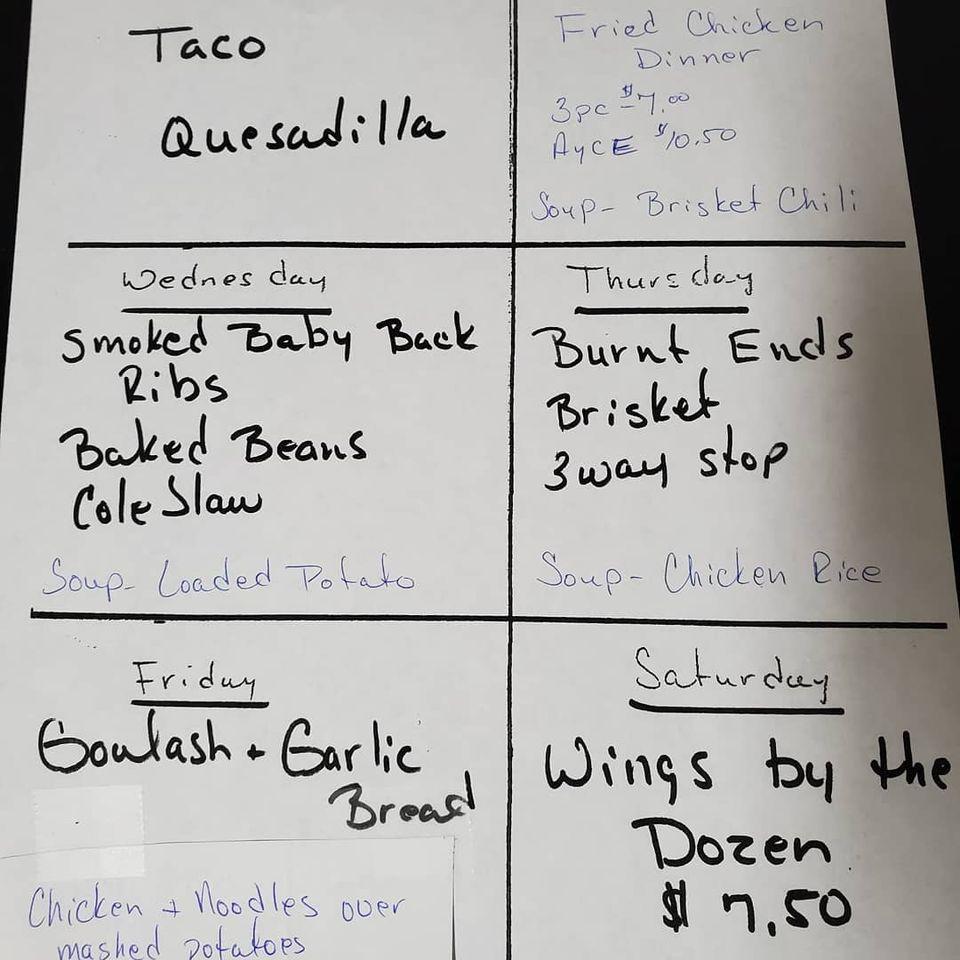 Taco
Quesadilla
Fried Chicken
Dinner
3pc - $7.00
AYCE $10.50
Soup- Brisket Chili
Wednesday
Smoked Baby Back
Ribs
Baked Beans
Cole Slaw
Soup- Loaded Potato
Thursday
Burnt Ends
Brisket
3way stop
Soup- Chicken Rice
Friday
Goulash + Garlic
Bread
Chicken + Noodles over
mashed potatoes
Saturday
Wings by the
Dozen
$7.50